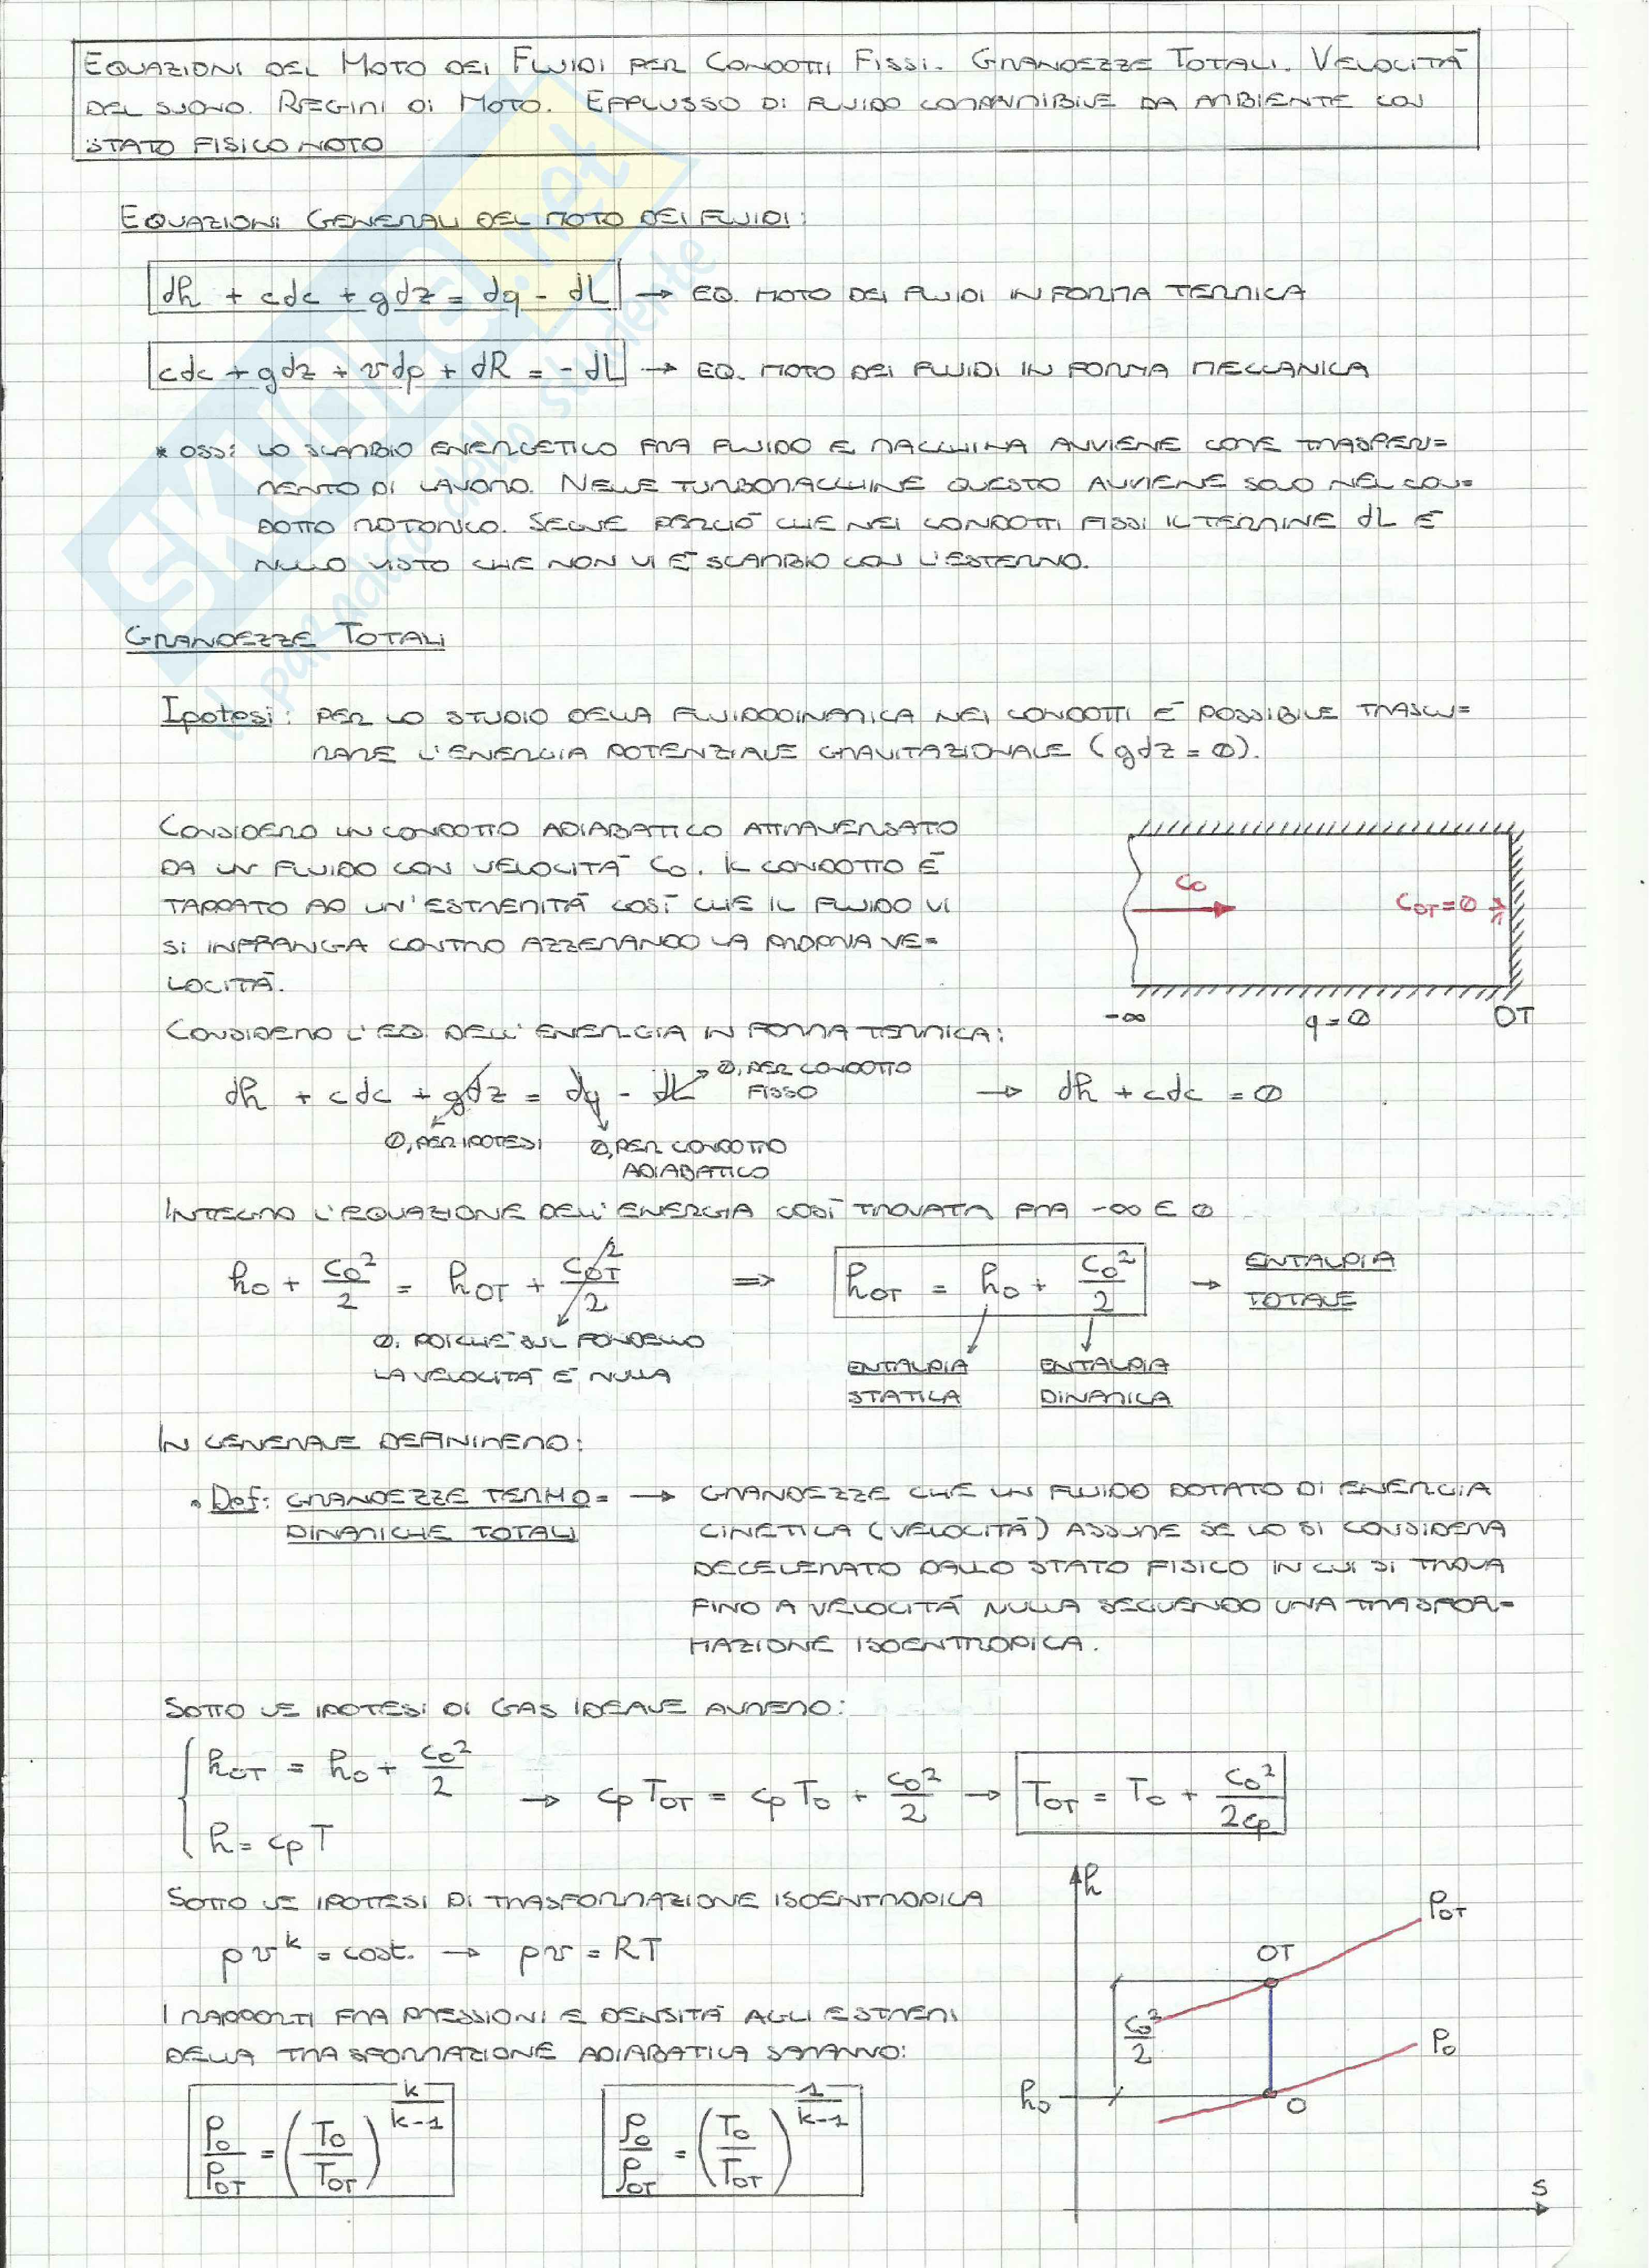 EQUAZIONI DEL MOTO DEI FLUIDI PER CONDOTTI FISSI. GRANDEZZE TOTALI. VELOCITÀ
DEL SUONO. REGIMI DI MOTO. EFFLUSSO DI FLUIDO COMPRIMIBILE DA AMBIENTE CON
STATO FISICO NOTO
EQUAZIONI GENERALI DEL MOTO DEI FLUIDI:
dh + cdc + gdz = dq - dL → EQ. MOTO DEI FLUIDI IN FORMA TERMICA
cdc + gdz + vdp + dR = - dL → EQ. MOTO DEI FLUIDI IN FORMA MECCANICA
* OSS: LO SCAMBIO ENERGETICO FRA FLUIDO E MACCHINA AVVIENE COME TRASFERI=
MENTO DI LAVORO. NELLE TURBOMACCHINE QUESTO AVVIENE SOLO NEL CON=
DOTTO ROTORICO. SEGUE PERCIÒ CHE NEI CONDOTTI FISSI IL TERMINE dL È
NULLO VISTO CHE NON VI È SCAMBIO CON L'ESTERNO.
GRANDEZZE TOTALI
Ipotesi: PER LO STUDIO DELLA FLUIDODINAMICA NEI CONDOTTI È POSSIBILE TRASCU=
RARE L'ENERGIA POTENZIALE GRAVITAZIONALE (gdz = 0).
CONSIDERO UN CONDOTTO ADIABATICO ATTRAVERSATO
DA UN FLUIDO CON VELOCITÀ C0. IL CONDOTTO È
TAPPATO AD UN'ESTREMITÀ COSÌ CHE IL FLUIDO VI
SI INFRANGA CONTRO AZZERANDO LA PROPRIA VE=
LOCITÀ.
C0
COT = 0
-∞ q = 0 OT
CONSIDERO L'EQ. DELL'ENERGIA IN FORMA TERMICA:
dh + cdc + gdz = dq - dL → dh + cdc = 0
0, PER CONDOTTO
FISSO
0, PER IPOTESI
0, PER CONDOTTO
ADIABATICO
INTEGRO L'EQUAZIONE DELL'ENERGIA COSÌ TROVATA FRA -∞ E 0
h0 + C0²/2 = hOT + COT²/2 ⇒ hOT = h0 + C0²/2 → ENTALPIA
TOTALE
0, POICHÈ SUL FONDELLO
LA VELOCITÀ È NULLA
ENTALPIA
STATICA
ENTALPIA
DINAMICA
IN GENERALE DEFINIREMO:
• Def: GRANDEZZE TERMO= → GRANDEZZE CHE UN FLUIDO DOTATO DI ENERGIA
DINAMICHE TOTALI CINETICA (VELOCITÀ) ASSUME SE LO SI CONSIDERA
DECELERATO DALLO STATO FISICO IN CUI SI TROVA
FINO A VELOCITÀ NULLA SEGUENDO UNA TRASFOR=
MAZIONE ISOENTROPICA.
SOTTO LE IPOTESI DI GAS IDEALE AVREMO:
hOT = h0 + C0²/2
h = cpT
→ cpTOT = cpT0 + C0²/2 → TOT = T0 + C0²/2cp
SOTTO LE IPOTESI DI TRASFORMAZIONE ISOENTROPICA
pv^k = cost. → pv = RT
I RAPPORTI FRA PRESSIONI E DENSITÀ AGLI ESTREMI
DELLA TRASFORMAZIONE ADIABATICA SARANNO:
P0/POT = (T0/TOT)^(k/(k-1))
ρ0/ρOT = (T0/TOT)^(1/(k-1))
h
POT
OT
C0²/2
P0
h0
O
S
SKUOLA.net
il paradiso dello studente